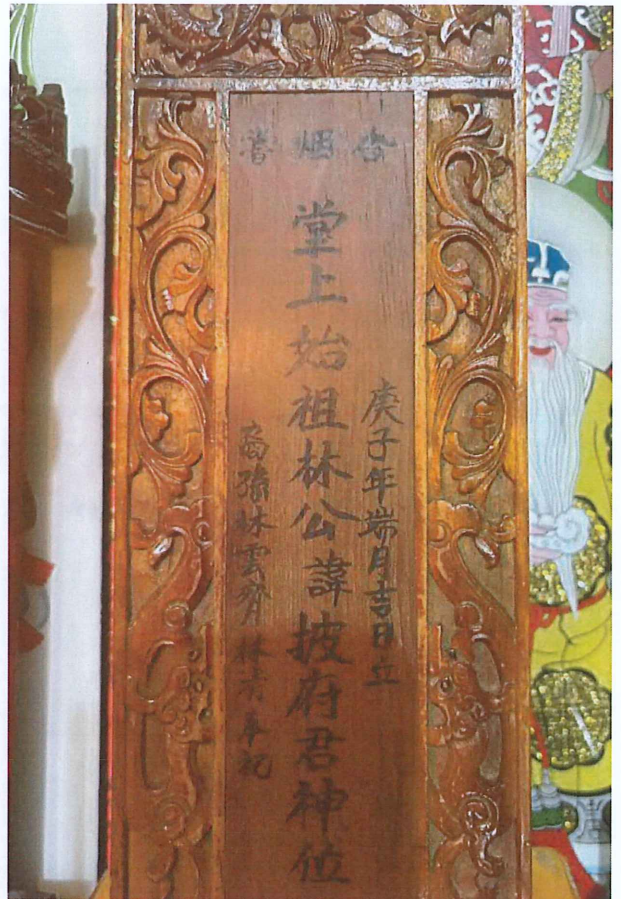 烟
庚子年端月吉日立
堂上始祖林公諱披府君神位
裔孫林雲林奉祀